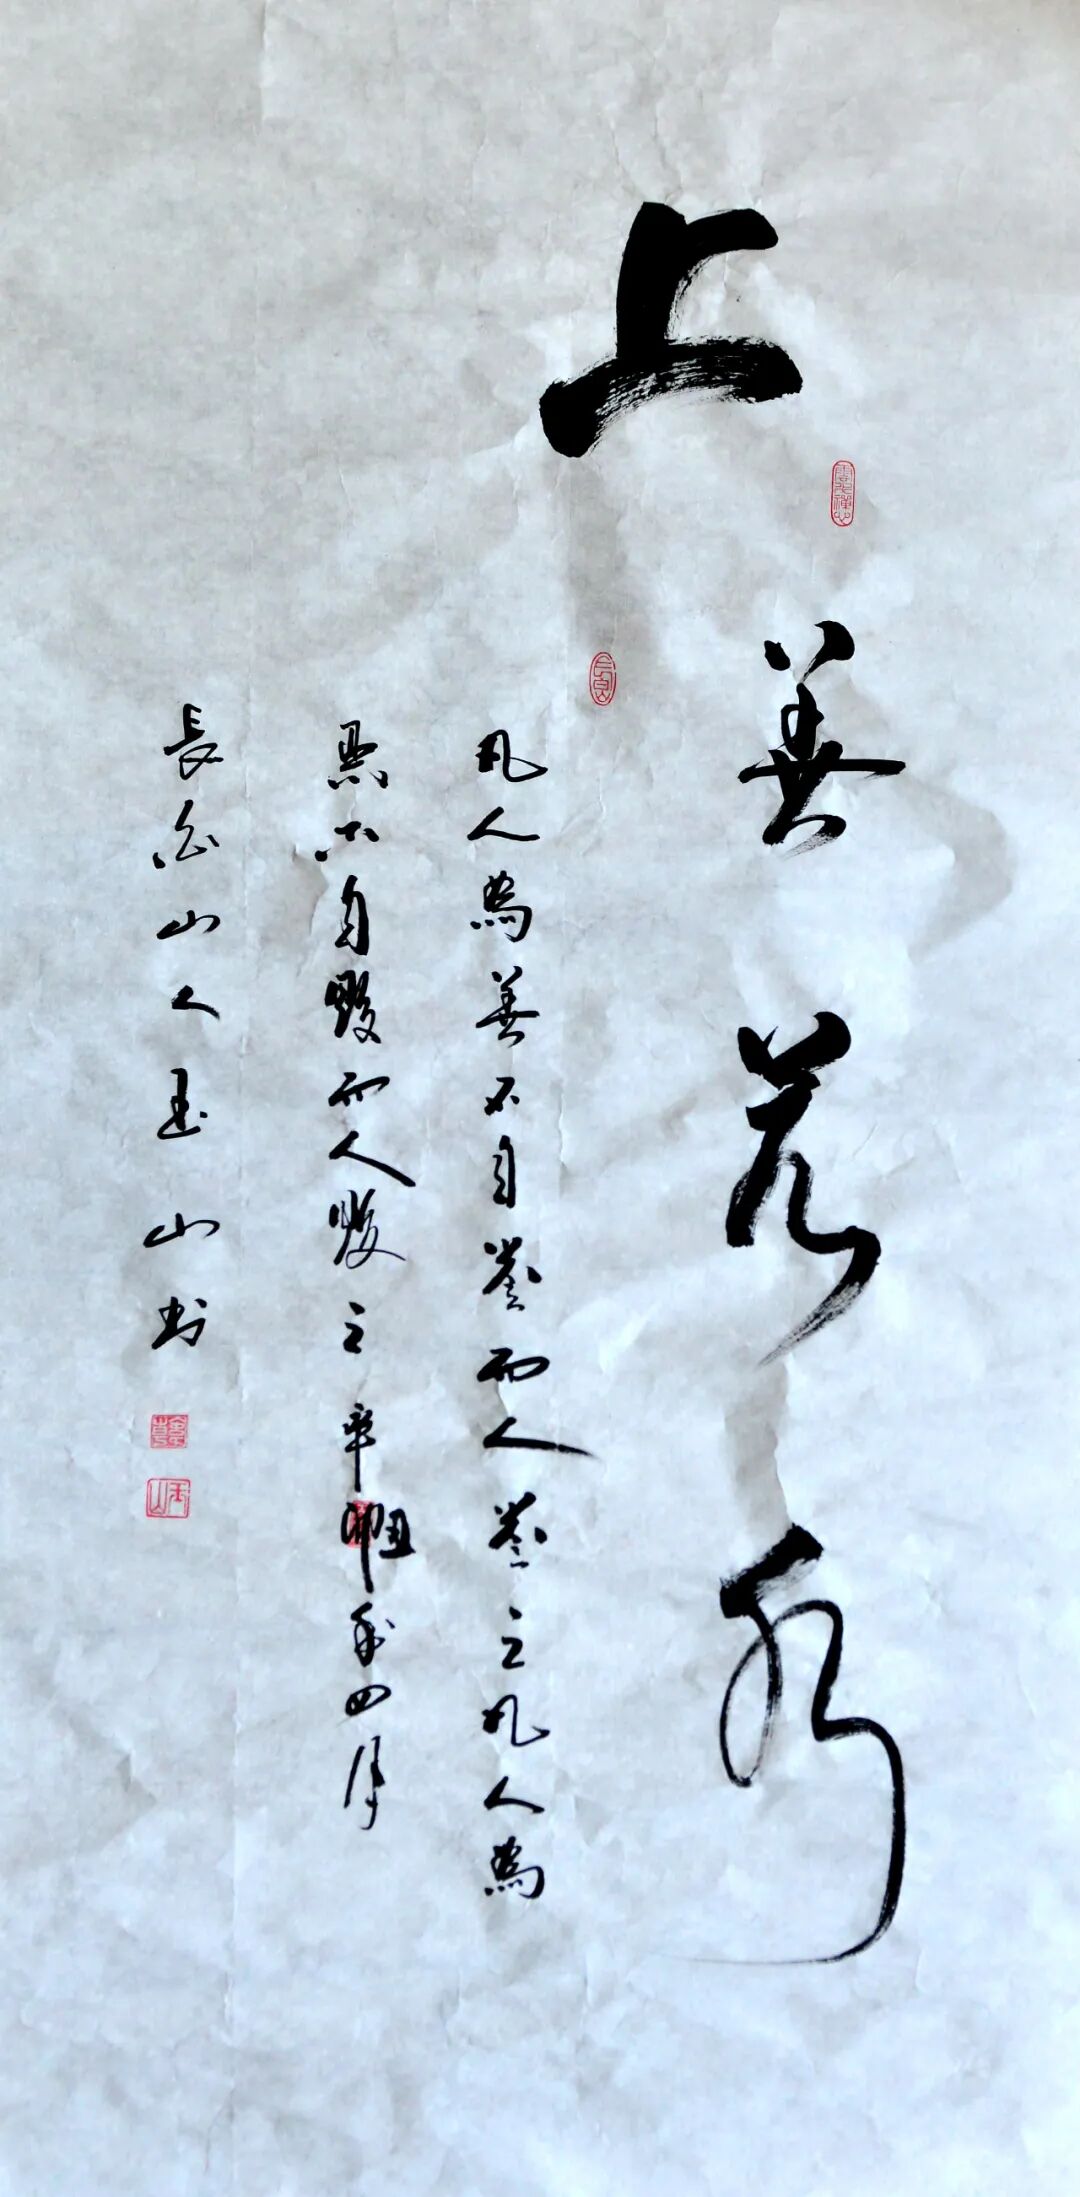 上善若水
凡人為善不自誉而人誉之凡人為
惡不自毀而人毀之辛丑年四月
長白山人玉山书
玉山